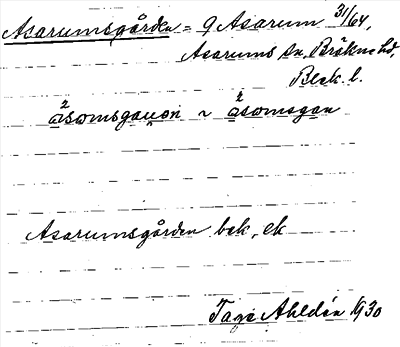 Asarumsgården = 9 Asarum 31/64,
Asarums sn, Bräkne hd,
Blek. l.
2 2
asomsgauen ~ asomsgan
Asarumsgården bek, ek
Tage Ahldén 1930